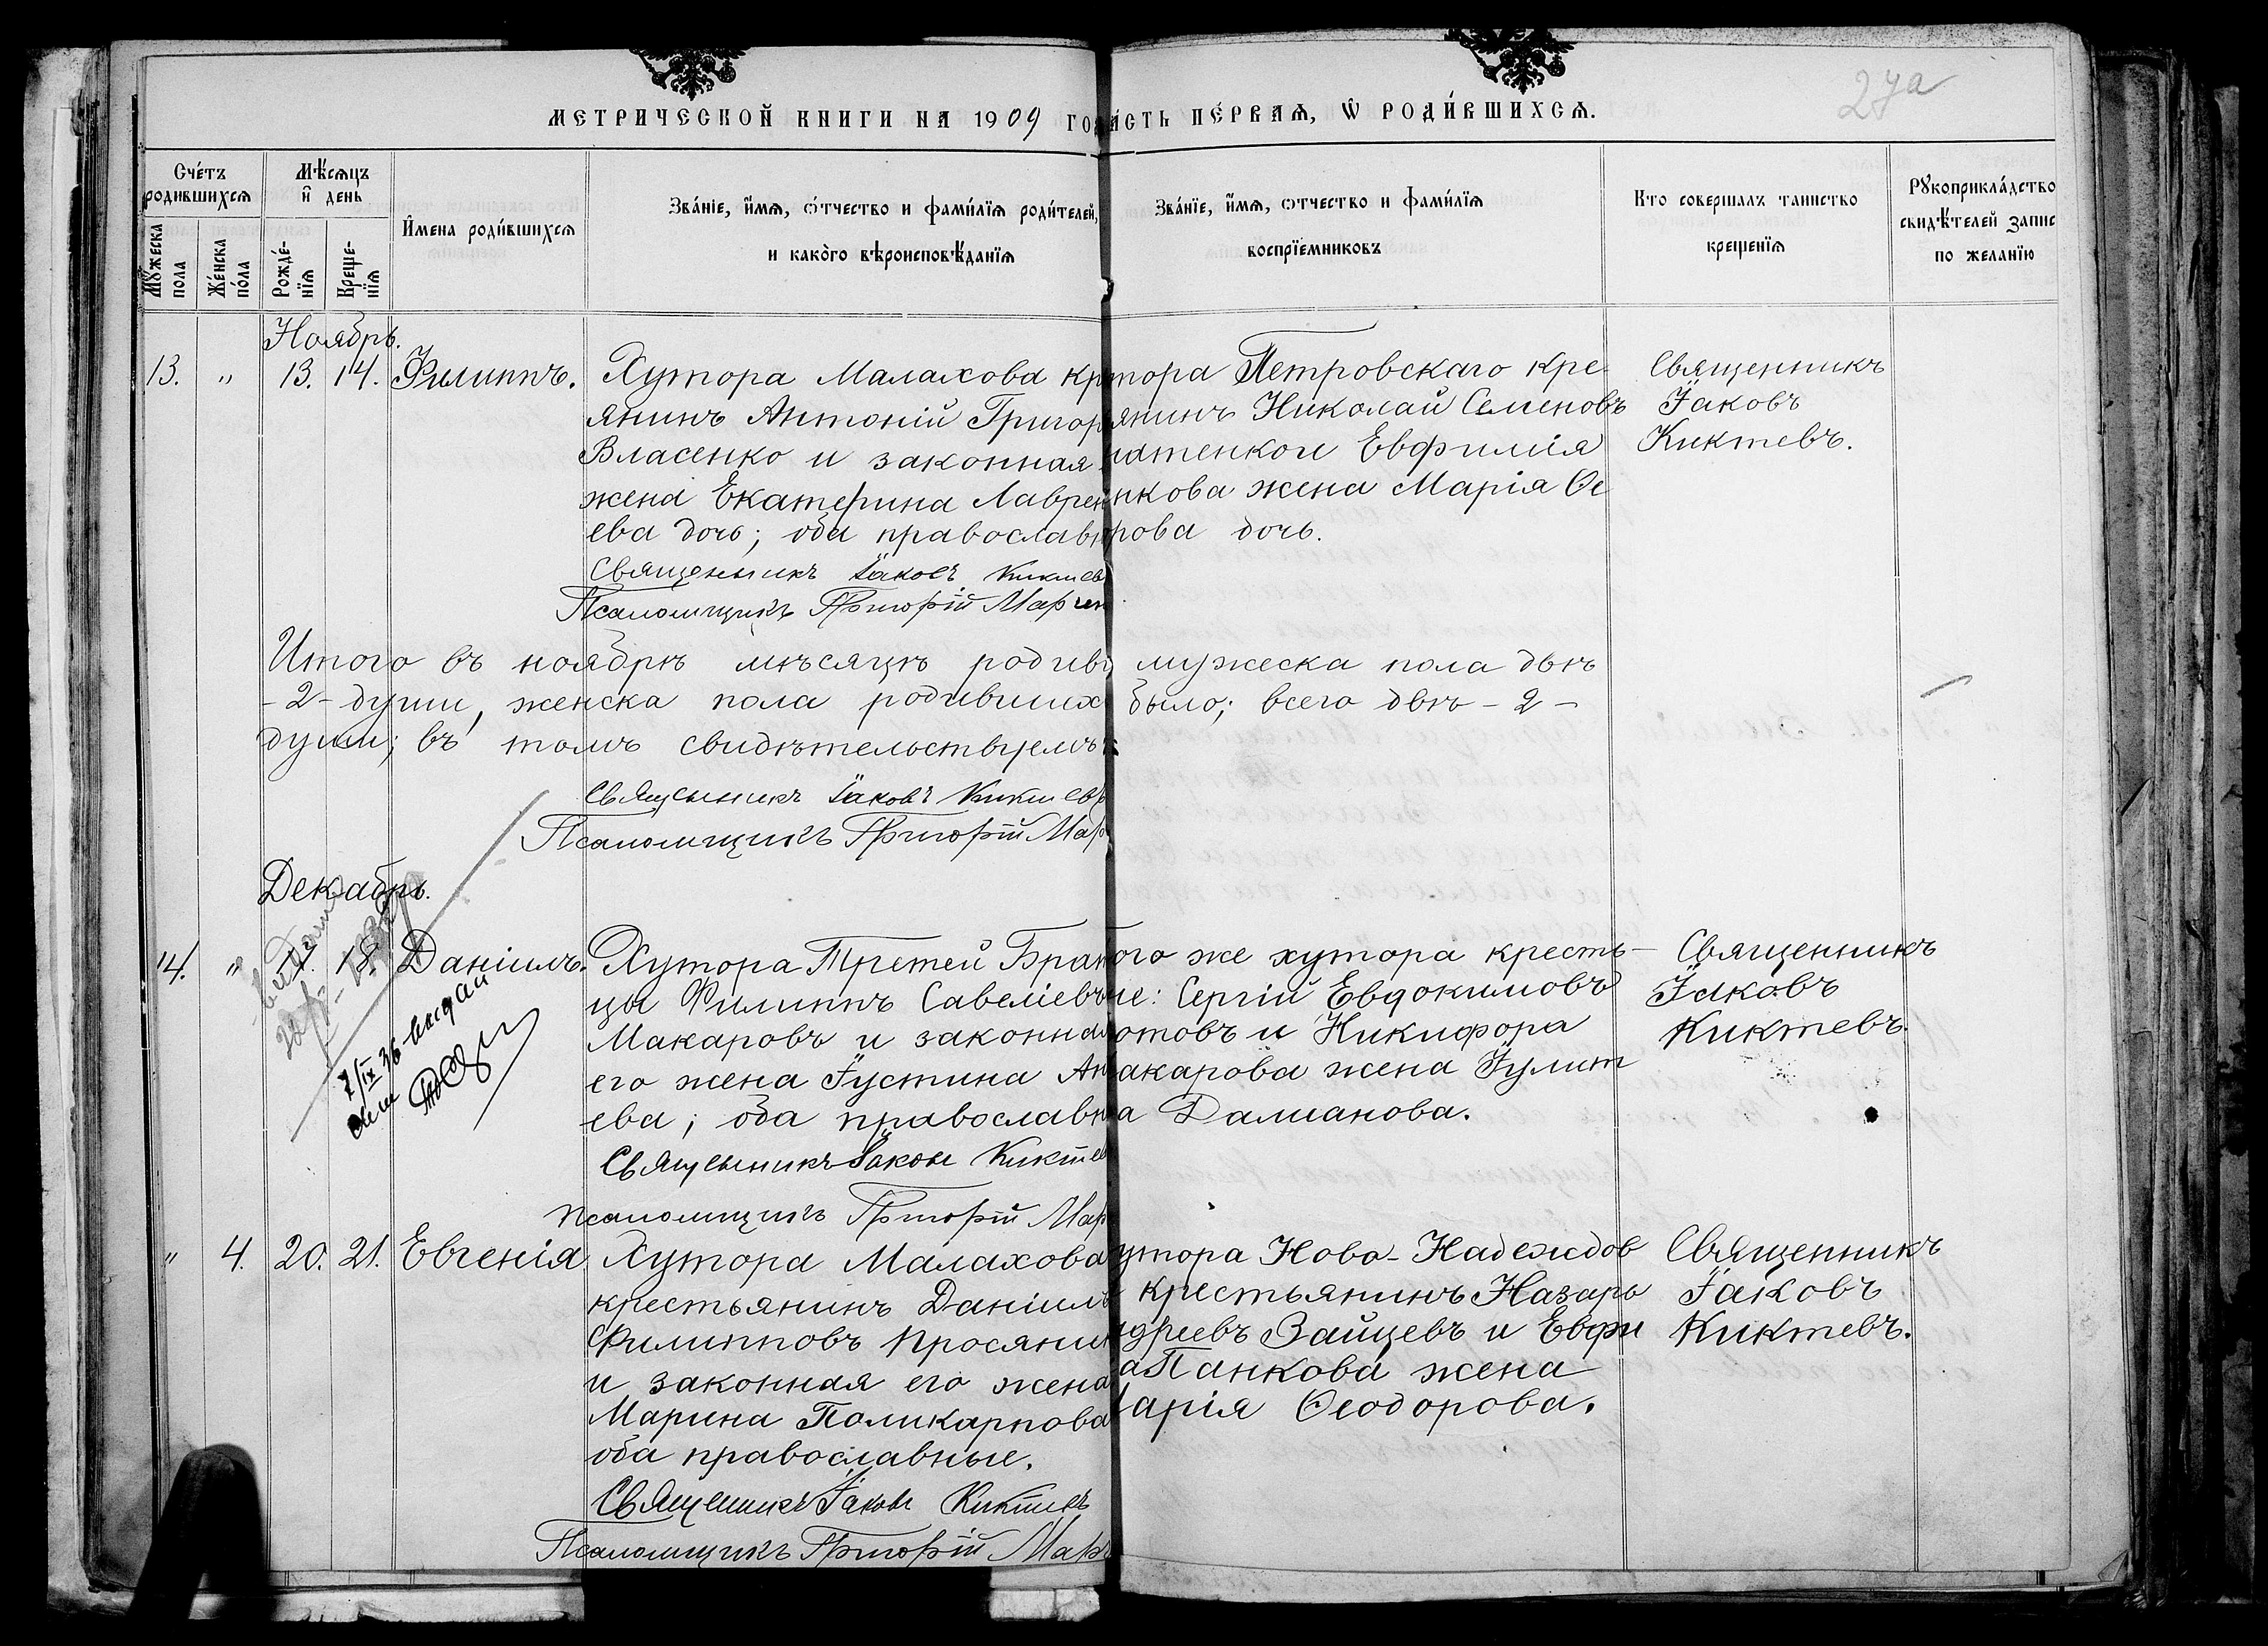 27а
МЕТРИЧЕСКОЙ КНИГИ НА 1909 ГОД
ΑСТЬ ПЕ́РВАЯ, Ѿ РОДИ́ВШИХСЯ.
Сче́тъ родившихся
Мѣ́сяцъ и҆ день
И҆мена роди́вшихся
Зва́нїе, и҆́мя, ѻ҆́тчество и фами́лїя роди́телей,
и како́го вѣроисповѣ́данїя
Зва́нїе, и҆́мя, ѻтчество и фами́лїя
воспрїе́мниковъ
Кто совершалъ таинство
крещенїя
Рꙋкоприкла́дство
свидѣ́телей запис
по желанїю
Мꙋ́жеска пола
Же́нска по́ла
Рожде́-нїя
Креще-нїя
Ноябрь.
13. " 13. 14. Филиппъ.
Хутора Малахова кр
янинъ Антоній Григор
Власенко и законная
жена Екатерина Лаврен
ева дочь; оба православн
Священникъ Іаковъ Киктев
Псаломщикъ Григорій Март
тора Петровскаго кре
янинъ Николай Семеновъ
атенкои Евфимія
нкова жена Марія Ѳе
рова дочь.
Священникъ
Іаковъ
Киктевъ.
Итого въ ноябрѣ мѣсяцѣ родивш мужеска пола двѣ
-2- души, женска пола родившихс было; всего двѣ -2-
души; въ томъ свидѣтельствуемъ
Священникъ Іаковъ Киктевъ
Псаломщикъ Григорій Мар
Декабрь.
14. " 17. 18. Даніилъ.
7/IX 36 выдан
Хутора Третей Бран
цы Филиппъ Савеліевъ
Макаровъ и законная
его жена Іустина Ан
ева; оба православн
Священникъ Іаковъ Киктев
Псаломщикъ Григорій Мар
ого же хутора кресть-
не: Сергій Евдокимовъ
отовъ и Никифора
акарова жена Іулит
а Далманова.
Священникъ
Іаковъ
Киктевъ.
" 4. 20. 21. Евгенія
Хутора Малахова
крестьянинъ Даніилъ
Филипповъ Просяни
и законная его жена
Марина Поликарпова
оба православные.
Священникъ Іаковъ Киктевъ
Псаломщикъ Григорій Март
утора Ново-Надеждов
крестьянинъ Назарь
ндреевъ Зайцевъ и Евфи
а Панкова жена
арія Ѳеодорова.
Священникъ
Іаковъ
Киктевъ.